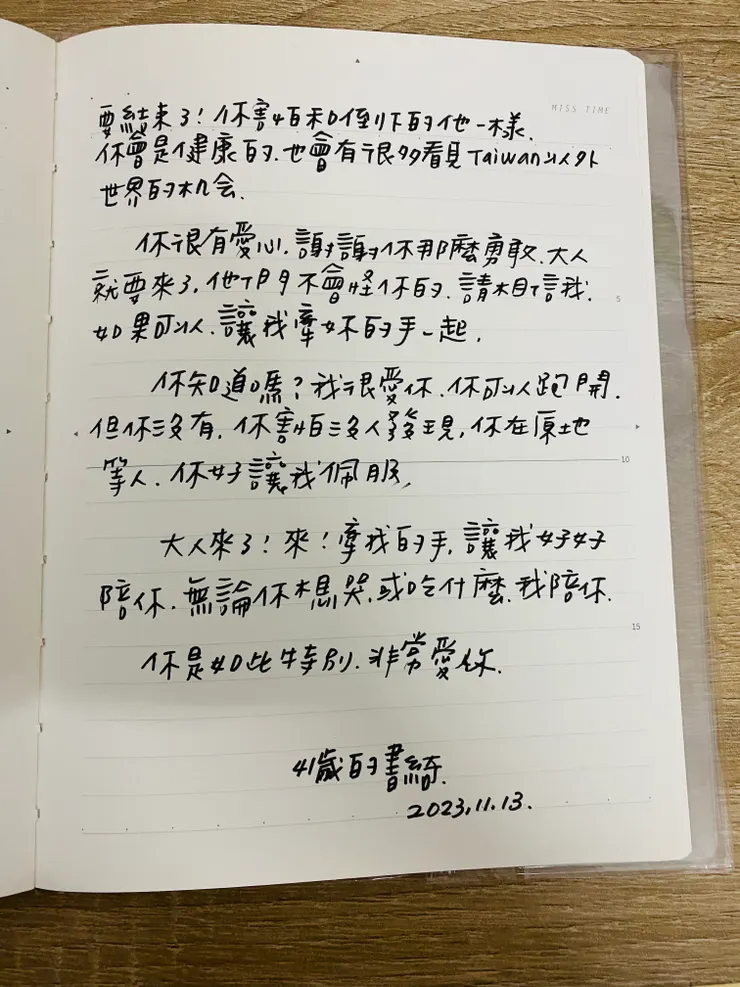 MISS TIME
要結束了!你害怕和倒下的他一樣.
你會是健康的.也會有很多看見Taiwan以外
世界的机会.
你很有愛心.謝謝你那麼勇敢.大人
就要來了.他們不會怪你的.請相信我.
5
如果可以.讓我牽妳的手一起.
你知道嗎?我很愛你.你可以跑開.
但你沒有.你害怕沒人發現,你在原地
10
等人.你好讓我佩服,
大人來了!來!牽我的手,讓我好好
陪你.無論你想哭.或吃什麼.我陪你.
15
你是如此特別.非常愛你.
41歲的書綺.
2023.11.13.